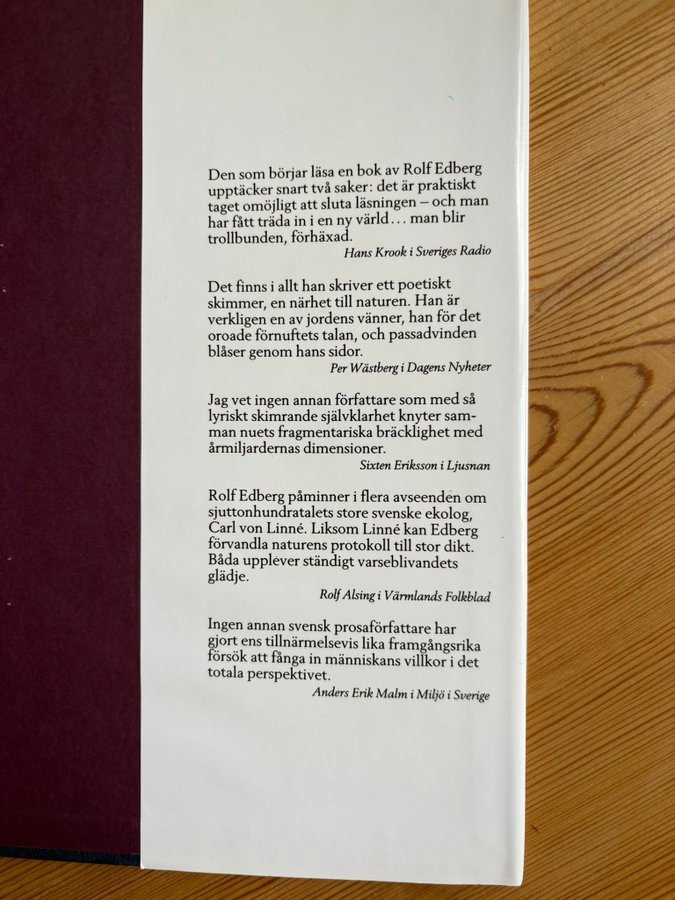 Den som börjar läsa en bok av Rolf Edberg
upptäcker snart två saker: det är praktiskt
taget omöjligt att sluta läsningen – och man
har fått träda in i en ny värld... man blir
trollbunden, förhäxad.
Hans Krook i Sveriges Radio
Det finns i allt han skriver ett poetiskt
skimmer, en närhet till naturen. Han är
verkligen en av jordens vänner, han för det
oroade förnuftets talan, och passadvinden
blåser genom hans sidor.
Per Wästberg i Dagens Nyheter
Jag vet ingen annan författare som med så
lyriskt skimrande självklarhet knyter sam-
man nuets fragmentariska bräcklighet med
årmiljardernas dimensioner.
Sixten Eriksson i Ljusnan
Rolf Edberg påminner i flera avseenden om
sjuttonhundratalets store svenske ekolog,
Carl von Linné. Liksom Linné kan Edberg
förvandla naturens protokoll till stor dikt.
Båda upplever ständigt varseblivandets
glädje.
Rolf Alsing i Värmlands Folkblad
Ingen annan svensk prosaförfattare har
gjort ens tillnärmelsevis lika framgångsrika
försök att fånga in människans villkor i det
totala perspektivet.
Anders Erik Malm i Miljö i Sverige